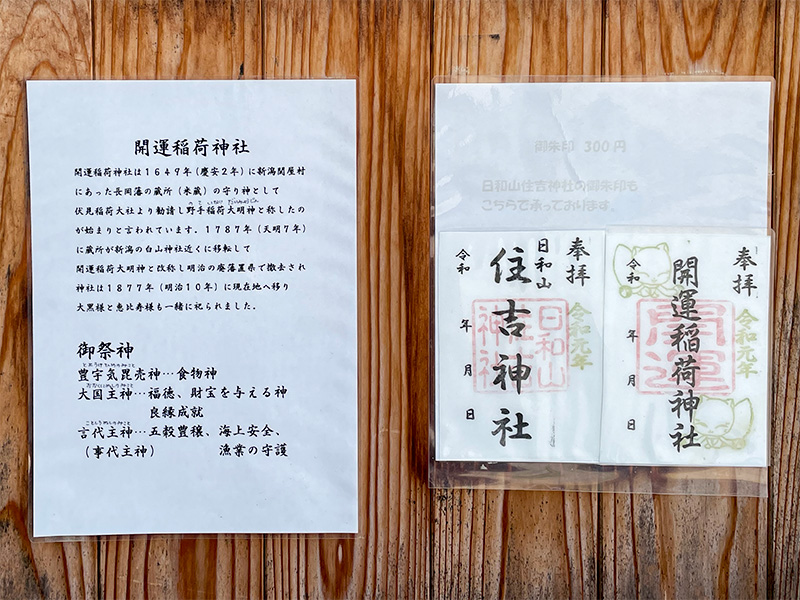 開運稲荷神社
開運稲荷神社は1649年(慶安2年)に新潟関屋村
にあった長岡藩の蔵所(米蔵)の守り神として
伏見稲荷大社より勧請し野手稲荷大明神と称したの
が始まりと言われています。1787年(天明7年)
に蔵所が新潟の白山神社近くに移転して
開運稲荷大明神と改称し明治の廃藩置県で撤去され
神社は1877年(明治10年)に現在地へ移り
大黒様と恵比寿様も一緒に祀られました。
御祭神
豊宇気毘売神…食物神
大国主神…福徳、財宝を与える神
良縁成就
言代主神…五穀豊穣、海上安全、
(事代主神) 漁業の守護
御朱印 300円
日和山住吉神社の御朱印も
こちらで承っております。
奉拝
日和山
住吉神社
令和 年 月 日
令和元年
日和山
住吉
神社
奉拝
開運稲荷神社
令和 年 月 日
令和元年
開運